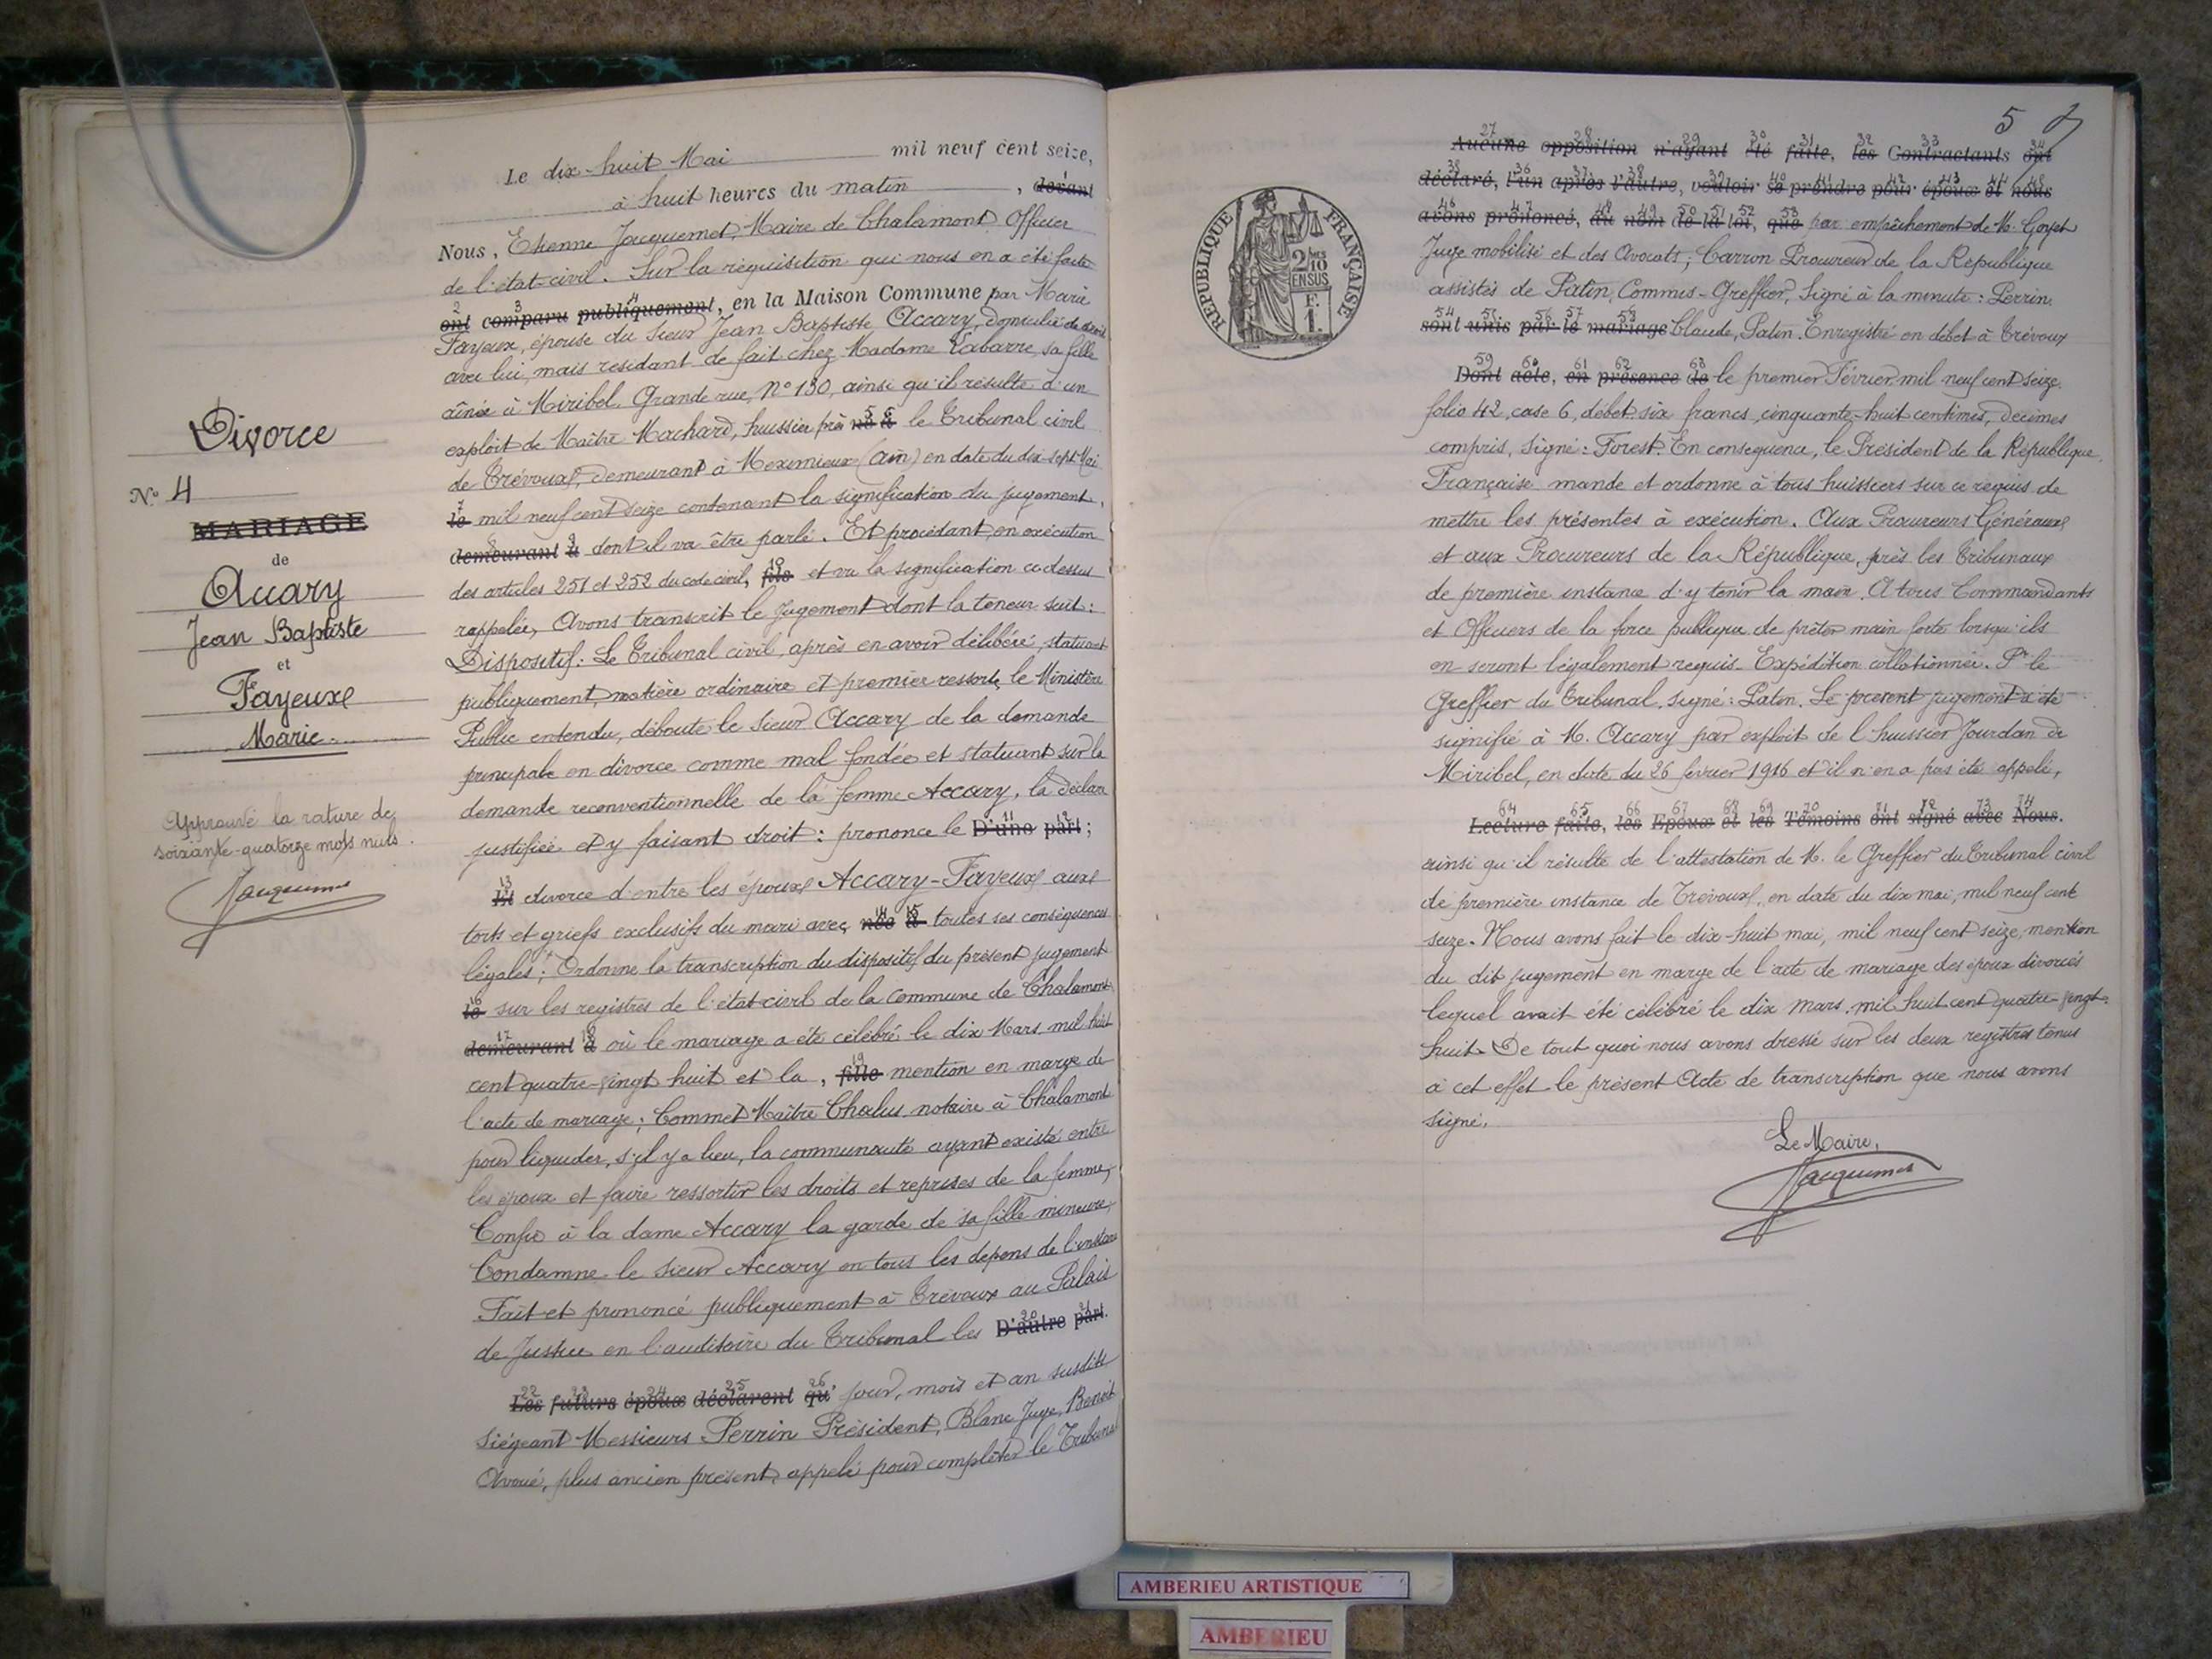 Divorce
N° 4
MARIAGE
de
Accary
Jean Baptiste
et
Fayeux
Marie.
Approuvé la rature de
soixante-quatorze mots nuls.
Jacquemet
Le dix-huit Mai mil neuf cent seize,
à huit heures du matin, devant
Nous, Etienne Jacquemet, Maire de Chalamont, Officier
de l'état-civil. Sur la réquisition qui nous en a été faite
ont comparu publiquement, en la Maison Commune par Marie
Fayeux, épouse du Sieur Jean Baptiste Accary, domicilié de droit
avec lui, mais residant de fait chez Madame Labarre, sa fille
aînée à Miribel, Grande rue, N° 130, ainsi qu'il résulte d'un
exploit de Maître Machard, huissier près né à le Tribunal civil
de Trévoux, demeurant à Meximieux (Ain) en date du dix-sept Mai
le mil neuf cent seize contenant la signification du jugement,
demeurant à dont il va être parlé. Et procédant en exécution
des articles 251 et 252 du code civil, fils et vu la signification ci-dessus
rappelée, Avons transcrit le jugement dont la teneur suit :
Dispositif : Le Tribunal civil, après en avoir délibéré, statuant
publiquement, matière ordinaire et premier ressort, le Ministère
Public entendu, déboute le sieur Accary de la demande
principale en divorce comme mal fondée et statuant sur la
demande reconventionnelle de la femme Accary, la déclare
justifiée et y faisant droit : prononce le D'une part ;
Et divorce d'entre les époux Accary-Fayeux aux
torts et griefs exclusifs du mari avec née à toutes ses conséquences
légales ; Ordonne la transcription du dispositif du présent jugement
le sur les registres de l'état-civil de la commune de Chalamont
demeurant à où le mariage a été célébré le dix Mars mil huit
cent quatre-vingt huit et la, fille mention en marge de
l'acte de mariage ; Commet Maître Chalus notaire à Chalamont
pour liquider, s'il y a lieu, la communauté ayant existé entre
les époux et faire ressortir les droits et reprises de la femme,
Confie à la dame Accary la garde de sa fille mineure,
Condamne le sieur Accary en tous les depens de l'instance
Fait et prononcé publiquement à Trévoux au Palais
de Justice en l'auditoire du Tribunal les D'autre part.
Les futurs époux déclarent qu' jour, mois et an susdits
Siégeant Messieurs Perrin Président, Blanc Juge, Benoit
Avoué, plus ancien présent, appelé pour compléter le Tribunal
5
RÉPUBLIQUE FRANÇAISE
2/10 EN SUS
F.
1.
Aucune opposition n'ayant été faite, les Contractants ont
déclaré, l'un après l'autre, vouloir se prendre pour époux et nous
avons prononcé, au nom de la loi, que par empêchement de M. Goyet
Juge mobilisé et des Avocats ; Carron Procureur de la République
assistés de Patin, Commis-Greffier, Signé à la minute : Perrin
sont unis par le mariage Claude, Patin. Enregistré en débet à Trévoux
Dont acte, en présence de le premier Février mil neuf cent seize.
folio 42, case 6, débet six francs, cinquante-huit centimes, decimes
compris, Signé : Forest. En consequence, le Président de la République
Française mande et ordonne à tous huissiers sur ce requis de
mettre les présentes à exécution. Aux Procureurs Généraux
et aux Procureurs de la République, près les tribunaux
de première instance d'y tenir la main. A tous Commandants
et Officiers de la force publique de prêter main forte lorsqu'ils
en seront légalement requis. Expédition collationnée. Pr le
Greffier du Tribunal, signé : Patin. Le présent jugement a été
signifié à M. Accary par exploit de l'huissier Jourdan de
Miribel, en date du 26 février 1916 et il n'en a pas été appelé,
Lecture faite, les Epoux et les Témoins ont signé avec Nous.
ainsi qu'il résulte de l'attestation de M. le Greffier du Tribunal civil
de première instance de Trévoux, en date du dix mai, mil neuf cent
seize. Nous avons fait le dix-huit mai, mil neuf cent seize, mention
du dit jugement en marge de l'acte de mariage des époux divorcés
lequel avait été célébré le dix mars mil huit cent quatre-vingt-
huit. De tout quoi nous avons dressé sur les deux registres tenus
à cet effet le présent Acte de transcription que nous avons
signé.
Le Maire,
Jacquemet
AMBERIEU ARTISTIQUE
AMBERIEU